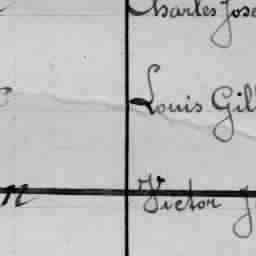 Charles Jose
Louis Gil
Victor J